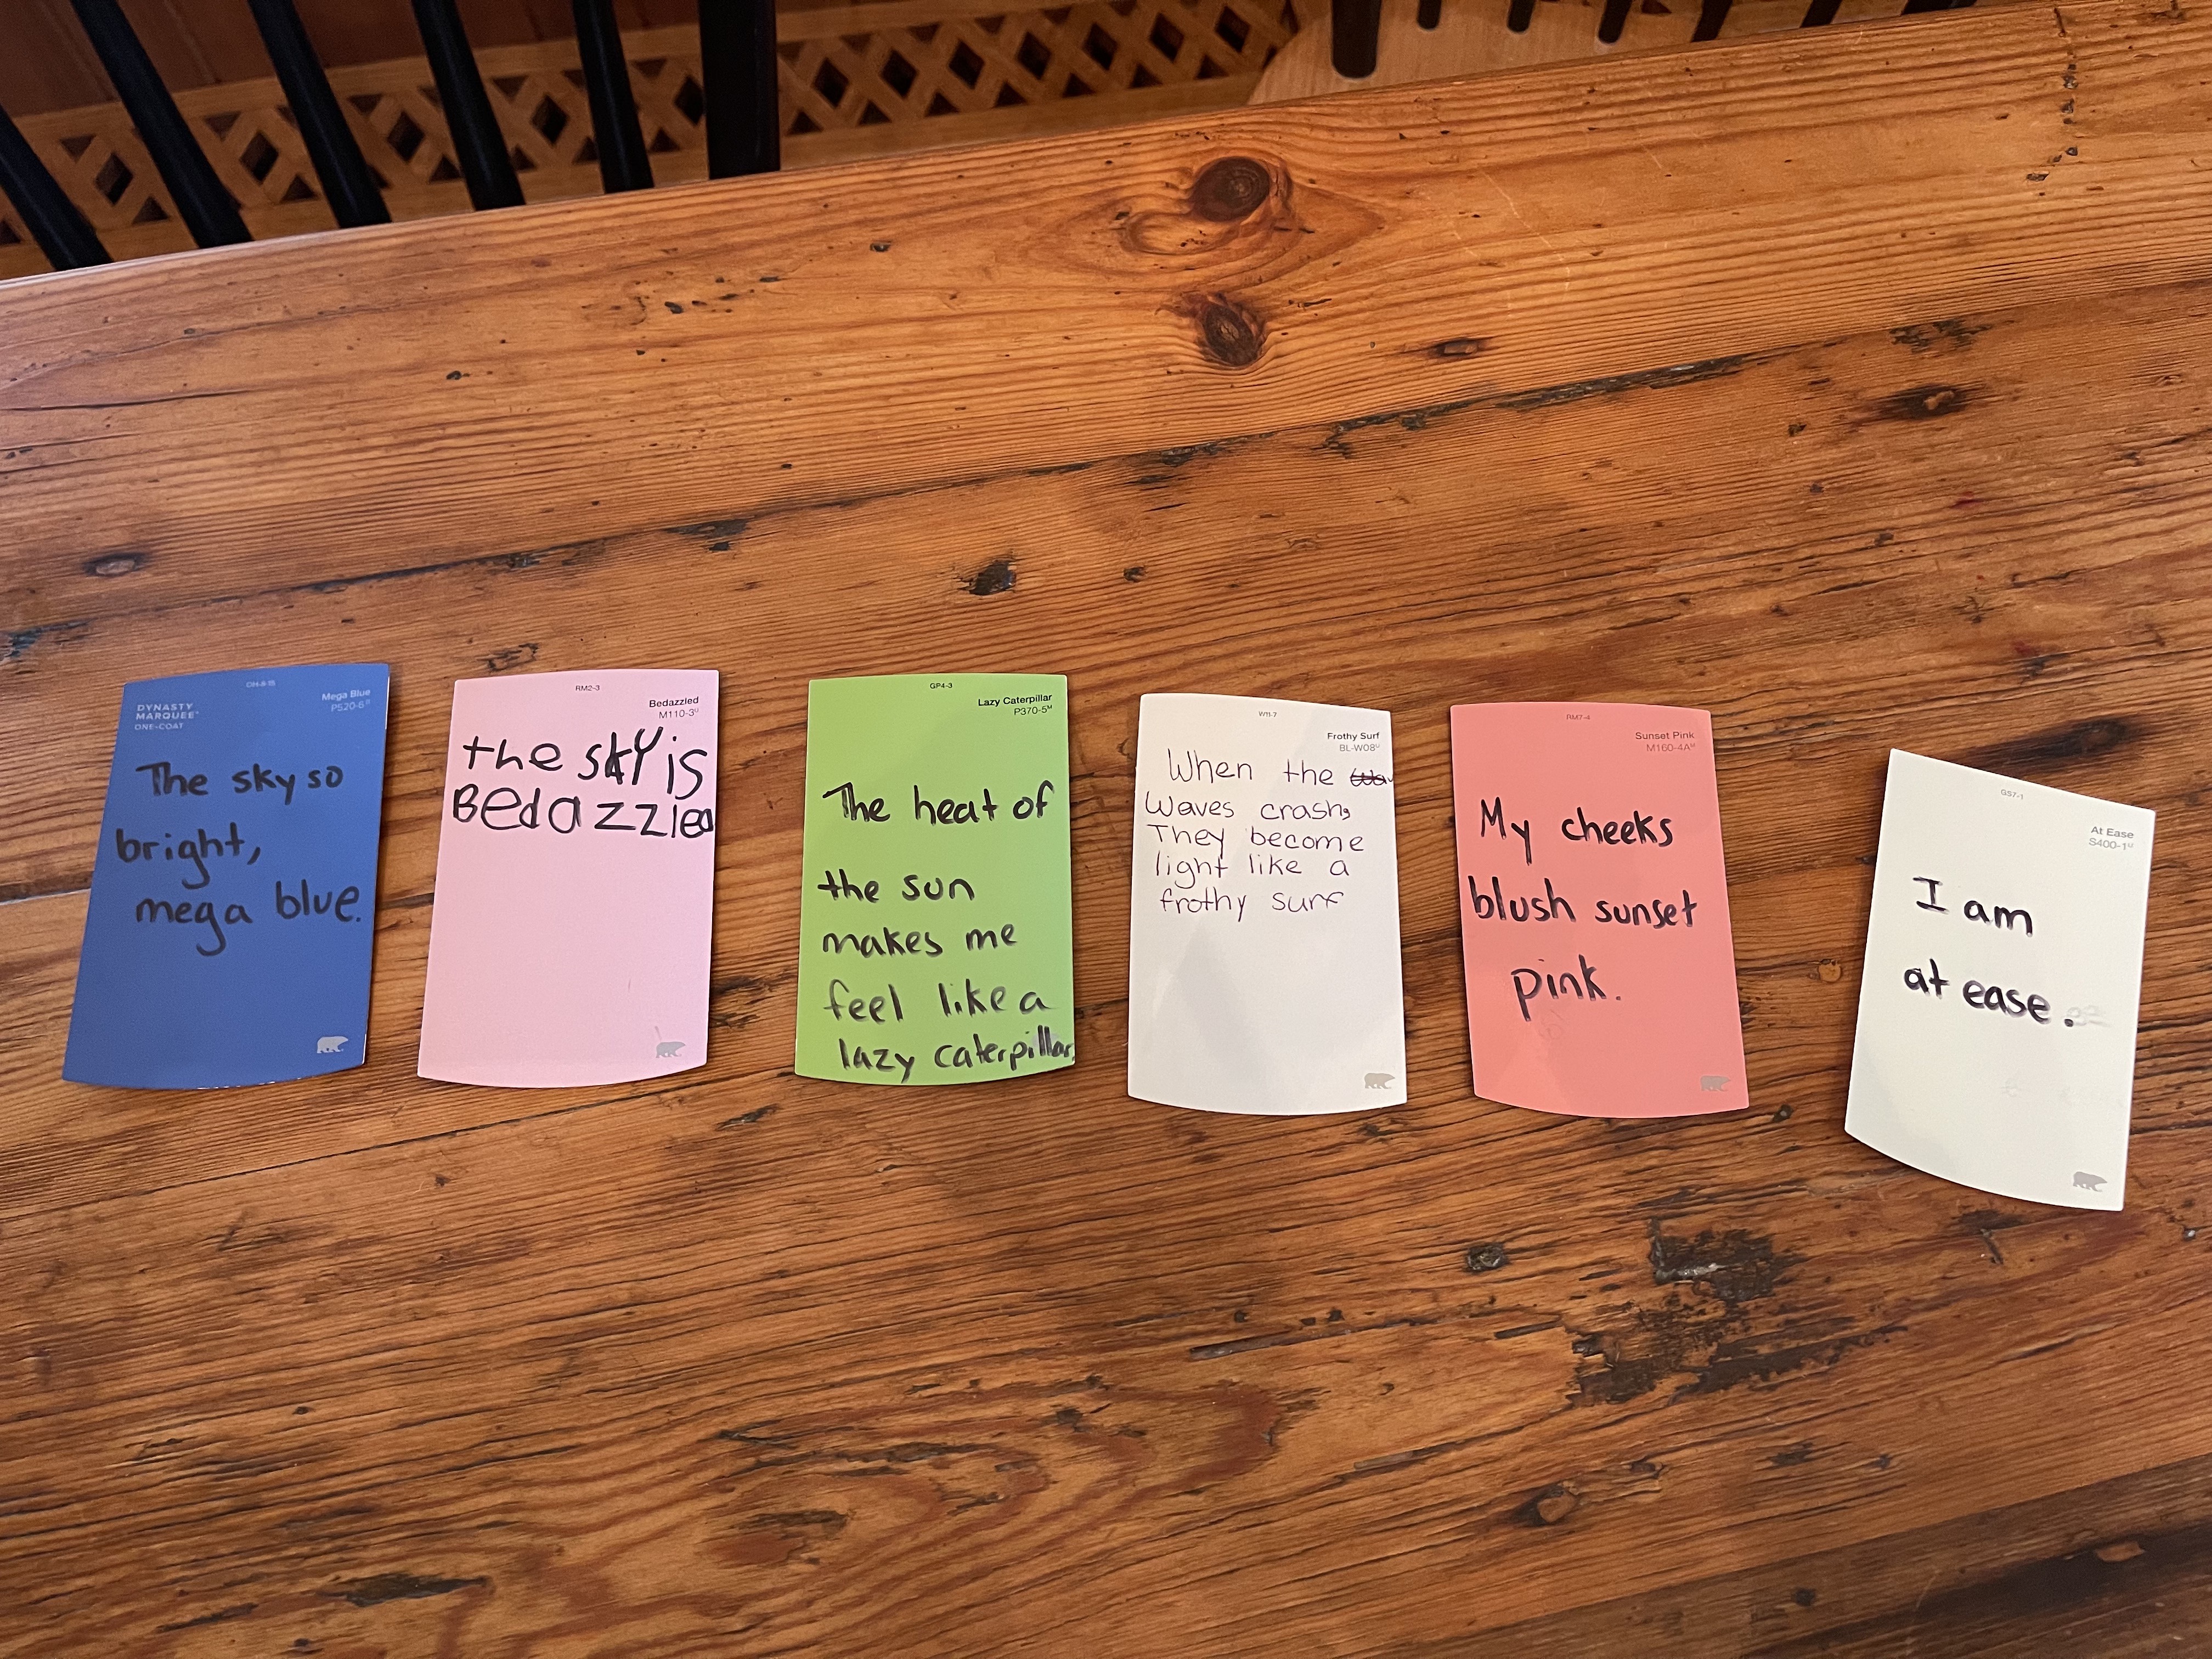 DH-8-15
DYNASTY
MARQUEE™
ONE-COAT
Mega Blue
P520-6ᵁ
The sky so
bright,
mega blue.
RM2-3
Bedazzled
M110-3ᵁ
the sky is
Bedazzled
GP4-3
Lazy Caterpillar
P370-5ᴹ
The heat of
the sun
makes me
feel like a
lazy caterpillar.
W11-7
Frothy Surf
BL-W08ᵁ
When the
waves crash,
They become
light like a
frothy surf
RM7-4
Sunset Pink
M160-4Aᴹ
My cheeks
blush sunset
pink.
GS7-1
At Ease
S400-1ᵁ
I am
at ease.